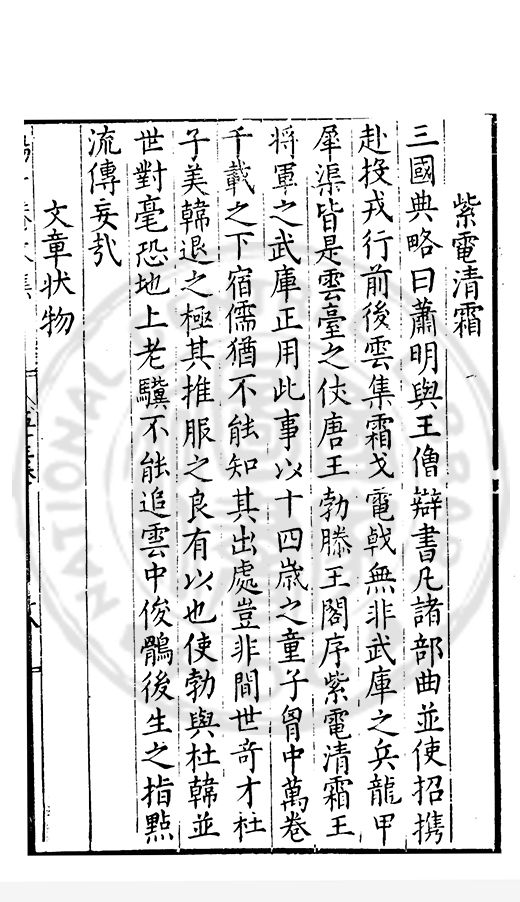 紫電清霜
三國典略曰蕭明與王僧辯書凡諸部曲並使招携
赴投戎行前後雲集霜戈電戟無非武庫之兵龍甲
犀渠皆是雲臺之仗唐王勃滕王閣序紫電清霜王
將軍之武庫正用此事以十四歲之童子胷中萬卷
千載之下宿儒猶不能知其出處豈非間世奇才杜
子美韓退之極其推服之良有以也使勃與杜韓並
世對毫恐地上老驥不能追雲中俊鶻後生之指點
流傳妄㢤
文章状物